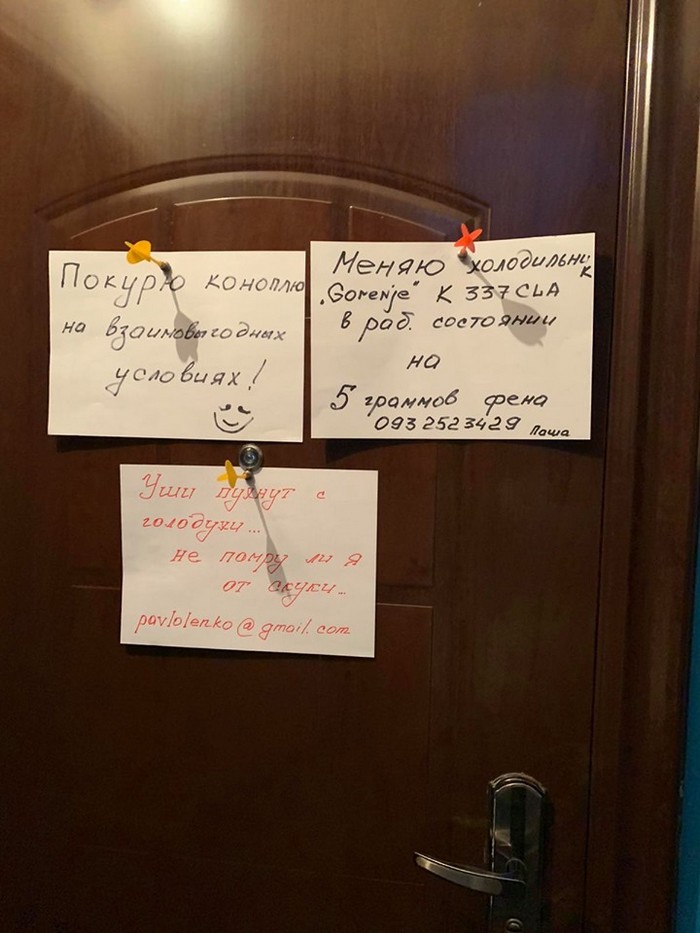 Покурю коноплю
на взаимовыгодных
условиях!
Меняю холодильник
„Gorenje" К 337 CLA
в раб. состоянии
на
5 граммов фена
093 2523429 Паша
Уши пухнут с
голодухи...
не помру ли я
от скуки...
pavlolenko@gmail.com